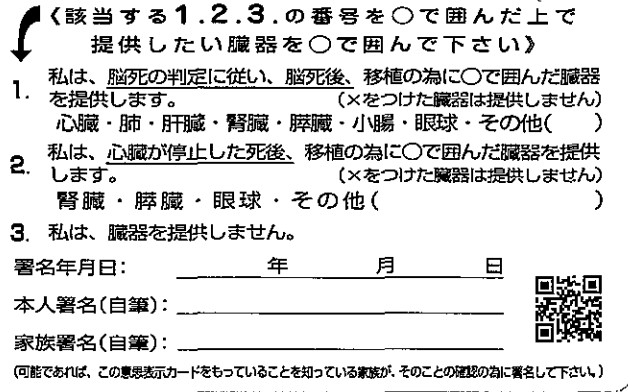 《該当する1.2.3.の番号を〇で囲んだ上で
提供したい臓器を〇で囲んで下さい》
1. 私は、脳死の判定に従い、脳死後、移植の為に〇で囲んだ臓器
を提供します。 (×をつけた臓器は提供しません)
心臓・肺・肝臓・腎臓・膵臓・小腸・眼球・その他( )
2. 私は、心臓が停止した死後、移植の為に〇で囲んだ臓器を提供
します。 (×をつけた臓器は提供しません)
腎臓・膵臓・眼球・その他( )
3. 私は、臓器を提供しません。
署名年月日: 年 月 日
本人署名(自筆):
家族署名(自筆):
(可能であれば、この意思表示カードをもっていることを知っている家族が、そのことの確認の為に署名して下さい。)